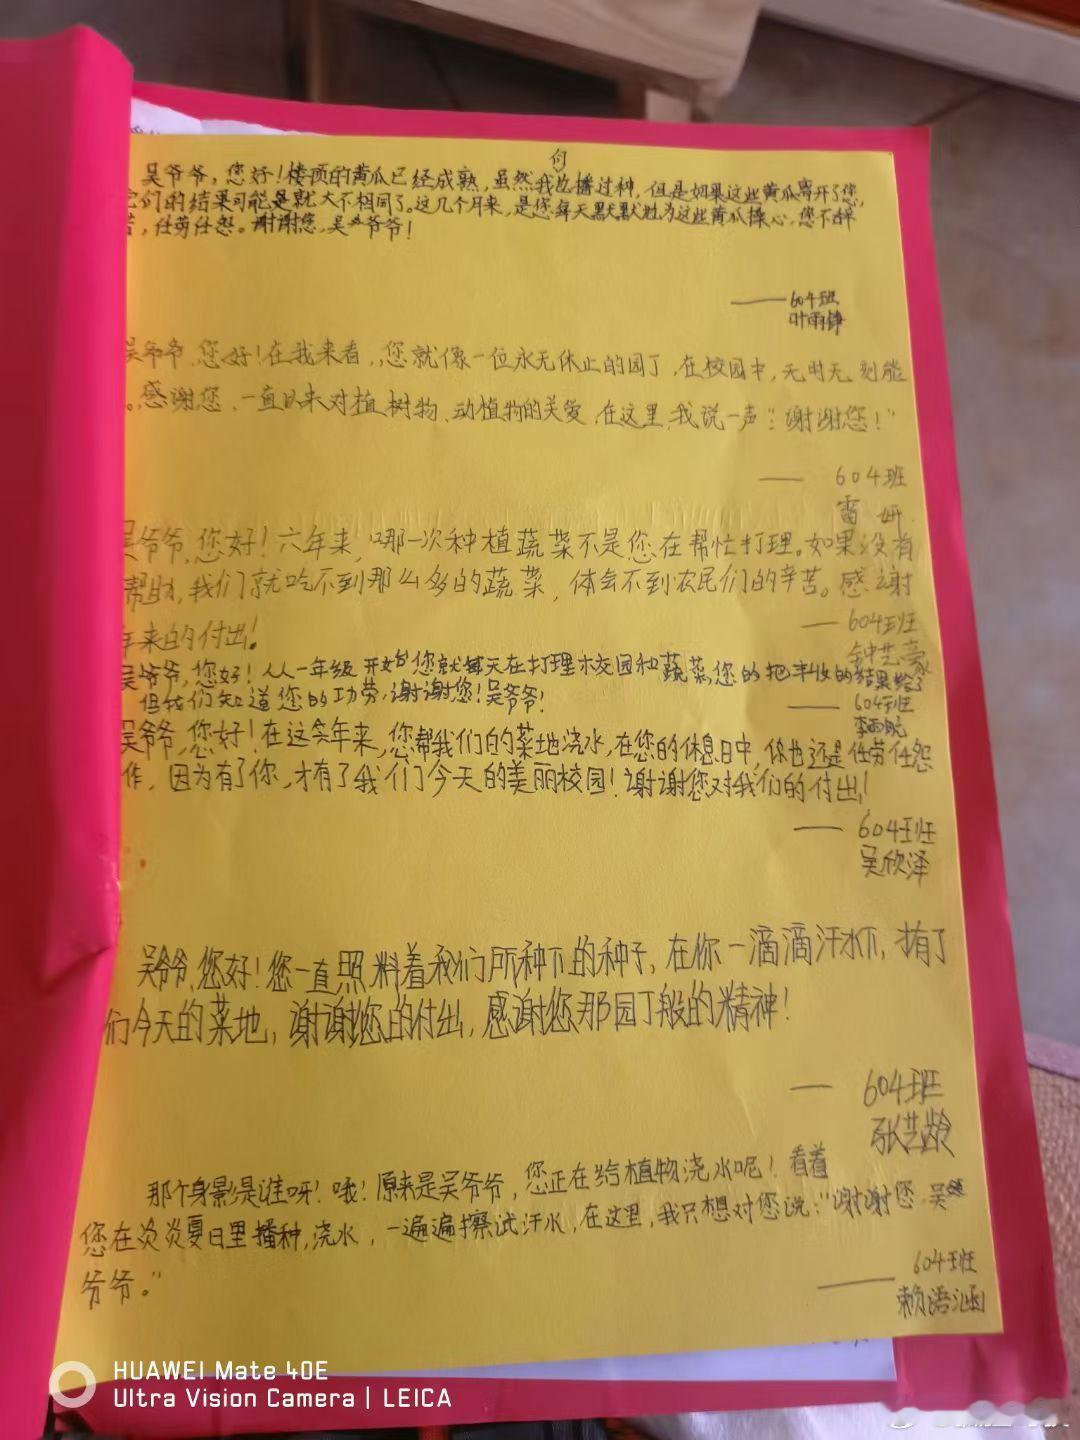 向
吴爷爷，您好！楼顶的黄瓜已经成熟，虽然我也播过种，但是如果这些黄瓜离开了您，
它们的结果可能是就大不相同了。这几个月来，是您每天默默地为这些黄瓜操心，您不辞
苦，任劳任怨。谢谢您，吴爷爷！
——604班
叶雨铮
吴爷爷，您好！在我来看，您就像一位永无休止的园丁，在校园中，无时无刻能
。感谢您，一直以来对植树物、动植物的关爱，在这里，我说一声："谢谢您！"
—— 604班
雷妍
吴爷爷，您好！六年来，哪一次种植蔬菜不是您在帮忙打理。如果没有
帮助，我们就吃不到那么多的蔬菜，体会不到农民们的辛苦。感谢
年来的付出！
—— 604班
钟艺豪
吴爷爷，您好！从一年级开始您就每天在打理校园和蔬菜，您的把丰收的结果给了
但我们知道您的功劳，谢谢您！吴爷爷！
—— 604班
李雨
吴爷爷，您好！在这笑年来，您帮我们的菜地浇水，在您的休息日中，你也还是任劳任怨
作，因为有了你，才有了我们今天的美丽校园！谢谢您对我们的付出！
—— 604班
吴欣泽
吴爷爷，您好！您一直照料着我们所种下的种子，在你一滴滴汗水下，才有了
们今天的菜地，谢谢您的付出，感谢您那园丁般的精神！
—— 604班
张艺龄
那个身影是谁呀！哦！原来是吴爷爷，您正在给植物浇水呢！看着
您在炎炎夏日里播种，浇水，一遍遍擦试汗水，在这里，我只想对您说："谢谢您，吴
爷爷。"
—— 604班
赖语涵
HUAWEI Mate 40E
Ultra Vision Camera | LEICA